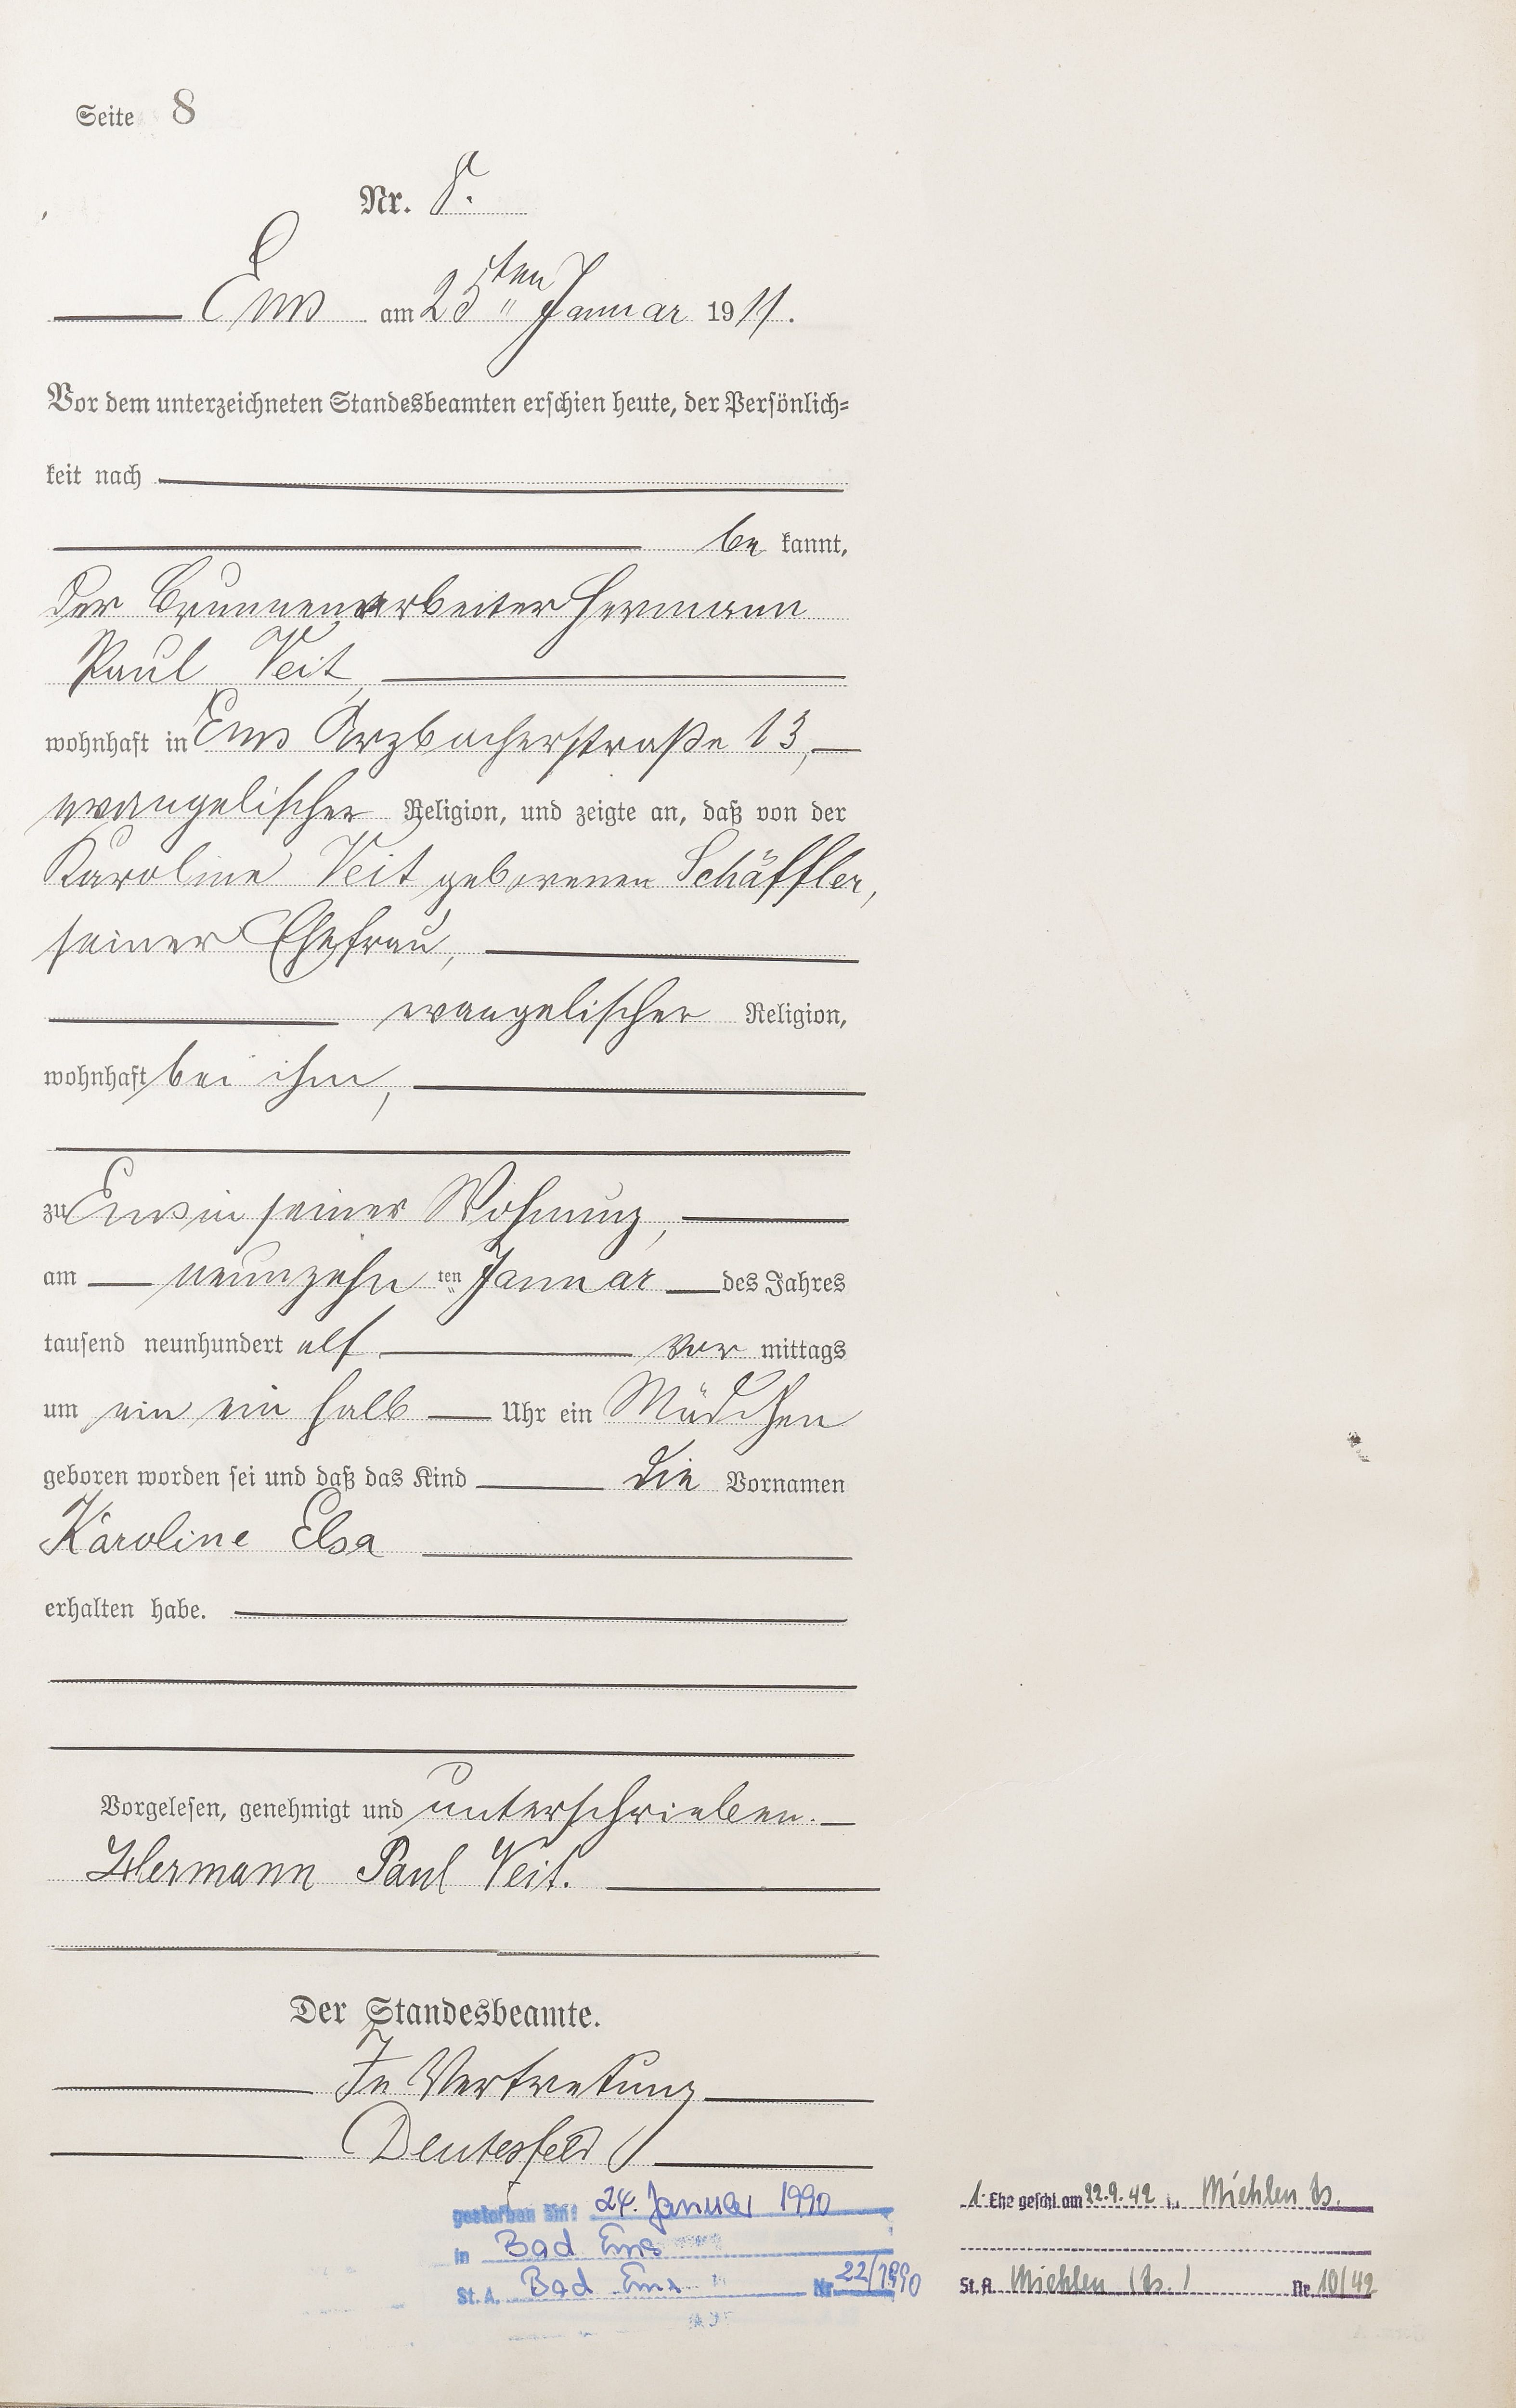 Seite 8
Nr. 8.
Ems am 25ten Januar 1911.
Vor dem unterzeichneten Standesbeamten erschien heute, der Persönlich=
keit nach
be kannt,
der Brunnenarbeiter Hermann
Paul Veit,
wohnhaft in Ems Arzbacherstraße 13,
evangelischer Religion, und zeigte an, daß von der
Karoline Veit geborenen Schäffler,
seiner Ehefrau,
evangelischer Religion,
wohnhaft bei ihm,
zu Ems in seiner Wohnung,
am neunzehn ten Januar des Jahres
tausend neunhundert elf vor mittags
um ein ein halb Uhr ein Mädchen
geboren worden sei und daß das Kind die Vornamen
Karoline Elsa
erhalten habe.
Vorgelesen, genehmigt und unterschrieben.
Hermann Paul Veit.
Der Standesbeamte.
In Vertretung
Deutesfeld
gestorben am: 24. Januar 1990
in Bad Ems
St. A. Bad Ems Nr. 22/1990
1. Ehe geschl. am 22.9.42 in Miehlen Ts.
St. A. Miehlen (Ts.) Nr. 10/42